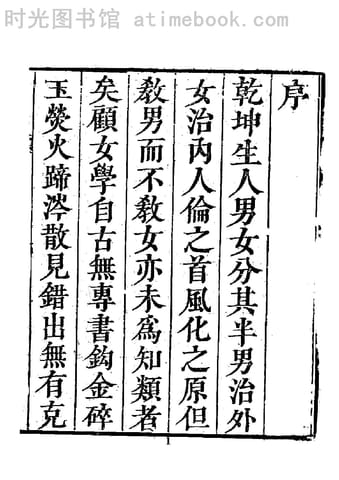 时光图书馆 atimebook.com
序
乾坤生人男女分其半男治外
女治內人倫之首風化之原但
敎男而不敎女亦未爲知類者
矣顧女學自古無專書鈎金碎
玉熒火蹄涔散見錯出無有克
1